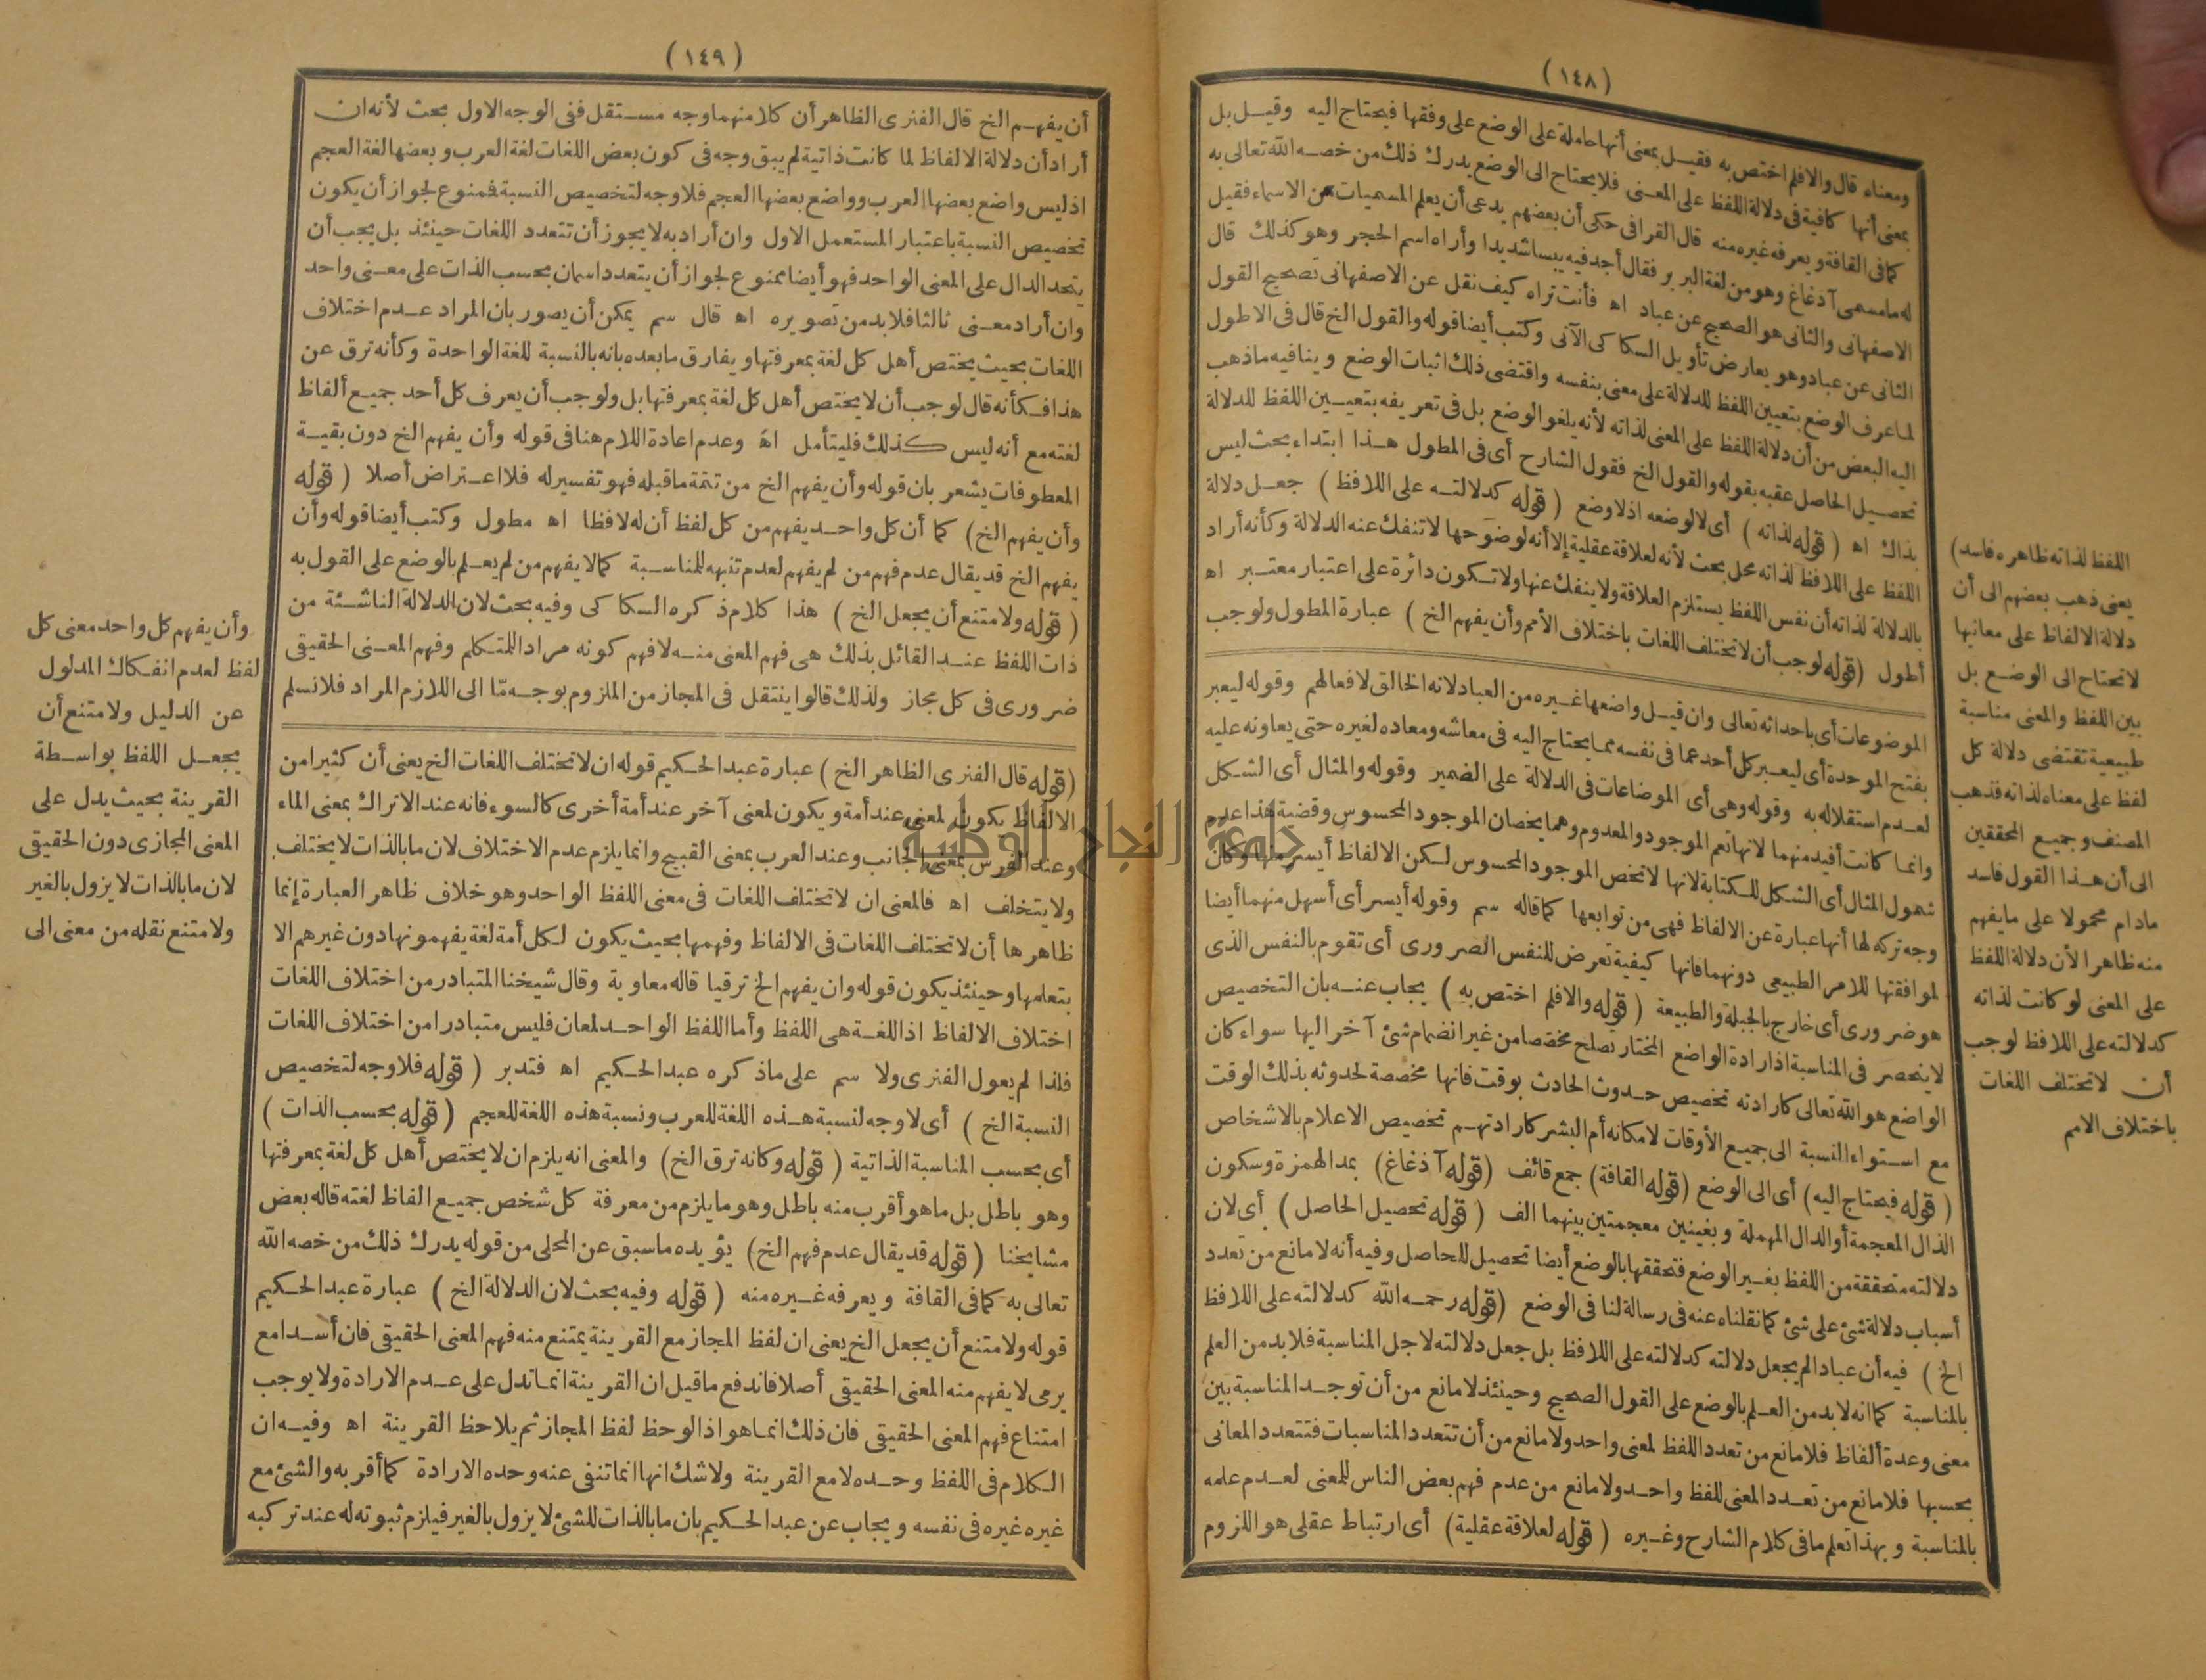 (١٤٨)
ومعناه قال والافلم اختص به فقيل بمعنى أنها حاملة على الوضع على وفقها فيحتاج اليه وقيل بل
بمعنى أنها كافية فى دلالة اللفظ على المعنى فلا يحتاج الى الوضع يدرك ذلك من خصه الله تعالى به
كما فى القافة ويعرفه غيره منه قال القرافى حكى أن بعضهم يدعى أن يعلم المسميات من الاسماء فقيل
له ما مسمى آذغاغ وهو من لغة البربر فقال أجد فيه يبسا شديدا وأراه اسم الحجر وهو كذلك قال
الاصفهانى والثانى هو الصحيح عن عباد اه فأنت تراه كيف نقل عن الاصفهانى تصحيح القول
الثانى عن عباد وهو يعارض تأويل السكاكى الآتى وكتب أيضا قوله والقول الخ قال فى الاطول
لما عرف الوضع بتعيين اللفظ للدلالة على معنى بنفسه واقتضى ذلك اثبات الوضع وينافيه ما ذهب
اليه البعض من أن دلالة اللفظ على المعنى لذاته لأنه يلغو الوضع بل فى تعريفه بتعيين اللفظ للدلالة
تحصيل الحاصل عقبه بقوله والقول الخ فقول الشارح أى فى المطول هذا ابتداء بحث ليس
بذاك اه (قوله لذاته) أى لا لوضعه اذ لا وضع (قوله كدلالته على اللافظ) جعل دلالة
اللفظ على اللافظ لذاته محل بحث لأنه لعلاقة عقلية إلا أنه لوضوحها لا تنفك عنه الدلالة وكأنه أراد
بالدلالة لذاته أن نفس اللفظ يستلزم العلاقة ولا ينفك عنها ولا تكون دائرة على اعتبار معتبر اه
أطول (قوله لوجب أن لا تختلف اللغات باختلاف الأمم وأن يفهم الخ) عبارة المطول ولوجب
الموضوعات أى باحداثه تعالى وان قيل واضعها غيره من العباد لانه الخالق لافعالهم وقوله ليعبر
بفتح الموحدة أى ليعبر كل أحد عما فى نفسه مما يحتاج اليه فى معاشه ومعاده لغيره حتى يعاونه عليه
لعدم استقلاله به وقوله وهى أى الموضاعات فى الدلالة على الضمير وقوله والمثال أى الشكل
وانما كانت أفيد منهما لانها تعم الموجود والمعدوم وهما يخصان الموجود المحسوس وقضية هذا عدم
شمول المثال أى الشكل للكتابة لانها لا تخص الموجود المحسوس لكن الالفاظ أيسر منها وكان
وجه تركه لها أنها عبارة عن الالفاظ فهى من توابعها كما قاله سم وقوله أيسر أى أسهل منهما أيضا
لموافقتها للامر الطبيعى دونهما فانها كيفية تعرض للنفس الضرورى أى تقوم بالنفس الذى
هو ضرورى أى خارج بالجبلة والطبيعة (قوله والافلم اختص به) يجاب عنه بان التخصيص
لا ينحصر فى المناسبة اذ ارادة الواضع المختار تصلح مخصصا من غير انضمام شئ آخر اليها سواء كان
الواضع هو الله تعالى كارادته تخصيص حدوث الحادث بوقت فانها مخصصة لحدوثه بذلك الوقت
مع استواء النسبة الى جميع الأوقات لامكانه أم البشر كارادتهم تخصيص الاعلام بالاشخاص
(قوله فيحتاج اليه) أى الى الوضع (قوله القافة) جمع قائف (قوله آذغاغ) بمد الهمزة وسكون
الذال المعجمة أو الدال المهملة وبغينين معجمتين بينهما الف (قوله تحصيل الحاصل) أى لان
دلالته متحققة من اللفظ بغير الوضع فتحققها بالوضع أيضا تحصيل للحاصل وفيه أنه لا مانع من تعدد
أسباب دلالة شئ على شئ كما نقلناه عنه فى رسالة لنا فى الوضع (قوله رحمه الله كدلالته على اللافظ
الخ) فيه أن عبادا لم يجعل دلالته كدلالته على اللافظ بل جعل دلالته لاجل المناسبة فلا بد من العلم
بالمناسبة كما انه لا بد من العلم بالوضع على القول الصحيح وحينئذ لا مانع من أن توجد المناسبة بين
معنى وعدة ألفاظ فلا مانع من تعدد اللفظ لمعنى واحد ولا مانع من أن تتعدد المناسبات فتتعدد المعانى
بحسبها فلا مانع من تعدد المعنى للفظ واحد ولا مانع من عدم فهم بعض الناس للمعنى لعدم علمه
بالمناسبة وبهذا تعلم ما فى كلام الشارح وغيره (قوله لعلاقة عقلية) أى ارتباط عقلى هو اللزوم
اللفظ لذاته ظاهره فاسد)
يعنى ذهب بعضهم الى أن
دلالة الالفاظ على معانيها
لا تحتاج الى الوضع بل
بين اللفظ والمعنى مناسبة
طبيعية تقتضى دلالة كل
لفظ على معناه لذاته فذهب
المصنف وجميع المحققين
الى أن هذا القول فاسد
مادام محمولا على ما يفهم
منه ظاهرا لأن دلالة اللفظ
على المعنى لو كانت لذاته
كدلالته على اللافظ لوجب
أن لا تختلف اللغات
باختلاف الامم
(١٤٩)
أن يفهم الخ قال الفنرى الظاهر أن كلا منهما وجه مستقل ففى الوجه الاول بحث لأنه ان
أراد أن دلالة الالفاظ لما كانت ذاتية لم يبق وجه فى كون بعض اللغات لغة العرب وبعضها لغة العجم
اذ ليس واضع بعضها العرب وواضع بعضها العجم فلا وجه لتخصيص النسبة فمنوع لجواز أن يكون
تخصيص النسبة باعتبار المستعمل الاول وان أراد به لا يجوز أن تتعدد اللغات حينئذ بل يجب أن
يتحد الدال على المعنى الواحد فهو أيضا ممنوع لجواز أن يتعدد اسمان بحسب الذات على معنى واحد
وان أراد معنى ثالثا فلا بد من تصويره اه قال سم يمكن أن يصور بان المراد عدم اختلاف
اللغات بحيث يختص أهل كل لغة بمعرفتها ويفارق ما بعده بانه بالنسبة للغة الواحدة وكأنه ترق عن
هذا فكأنه قال لوجب أن لا يختص أهل كل لغة بمعرفتها بل ولوجب أن يعرف كل أحد جميع ألفاظ
لغته مع أنه ليس كذلك فليتأمل اه وعدم اعادة اللام هنا فى قوله وأن يفهم الخ دون بقية
المعطوفات يشعر بان قوله وأن يفهم الخ من تتمة ما قبله فهو تفسير له فلا اعتراض أصلا (قوله
وأن يفهم الخ) كما أن كل واحد يفهم من كل لفظ أن له لافظا اه مطول وكتب أيضا قوله وأن
يفهم الخ قد يقال عدم فهم من لم يفهم لعدم تنبهه للمناسبة كما لا يفهم من لم يعلم بالوضع على القول به
(قوله ولا متنع أن يجعل الخ) هذا كلام ذكره السكاكى وفيه بحث لان الدلالة الناشئة من
ذات اللفظ عند القائل بذلك هى فهم المعنى منه لا فهم كونه مراد المتكلم وفهم المعنى الحقيقى
ضرورى فى كل مجاز ولذلك قالوا ينتقل فى المجاز من الملزوم بوجه مّا الى اللازم المراد فلا نسلم
(قوله قال الفنرى الظاهر الخ) عبارة عبد الحكيم قوله ان لا تختلف اللغات الخ يعنى أن كثيرا من
الالفاظ يكون لمعنى عند أمة ويكون لمعنى آخر عند أمة أخرى كالسوء فانه عند الاتراك بمعنى الماء
وعند الفرس بمعنى الجانب وعند العرب بمعنى القبيح وانما يلزم عدم الاختلاف لان ما بالذات لا يختلف
ولا يتخلف اه فالمعنى ان لا تختلف اللغات فى معنى اللفظ الواحد وهو خلاف ظاهر العبارة إنما
ظاهرها أن لا تختلف اللغات فى الالفاظ وفهمها بحيث يكون لكل أمة لغة يفهمونها دون غيرهم الا
بتعلمها وحينئذ يكون قوله وان يفهم الخ ترقيا قاله معاوية وقال شيخنا المتبادر من اختلاف اللغات
اختلاف الالفاظ اذ اللغة هى اللفظ وأما اللفظ الواحد لمعان فليس متبادرا من اختلاف اللغات
فلذا لم يعول الفنرى ولا سم على ما ذكره عبد الحكيم اه فتدبر (قوله فلا وجه لتخصيص
النسبة الخ) أى لا وجه لنسبة هذه اللغة للعرب ونسبة هذه اللغة للعجم (قوله بحسب الذات)
أى بحسب المناسبة الذاتية (قوله وكانه ترق الخ) والمعنى انه يلزم ان لا يختص أهل كل لغة بمعرفتها
وهو باطل بل ما هو أقرب منه باطل وهو ما يلزم من معرفة كل شخص جميع الفاظ لغته قاله بعض
مشايخنا (قوله قد يقال عدم فهم الخ) يؤيده ما سبق عن المحلى من قوله يدرك ذلك من خصه الله
تعالى به كما فى القافة ويعرفه غيره منه (قوله وفيه بحث لان الدلالة الخ) عبارة عبد الحكيم
قوله ولا متنع أن يجعل الخ يعنى ان لفظ المجاز مع القرينة يمتنع منه فهم المعنى الحقيقى فان أسدا مع
يرمى لا يفهم منه المعنى الحقيقى أصلا فاندفع ما قيل ان القرينة انما تدل على عدم الارادة ولا يوجب
امتناع فهم المعنى الحقيقى فان ذلك انما هو اذا لوحظ لفظ المجاز ثم يلاحظ القرينة اه وفيه ان
الكلام فى اللفظ وحده لا مع القرينة ولا شك انها انما تنفى عنه وحده الارادة كما أقر به والشئ مع
غيره غيره فى نفسه ويجاب عن عبد الحكيم بان ما بالذات للشئ لا يزول بالغير فيلزم ثبوته له عند تركبه
وأن يفهم كل واحد معنى كل
لفظ لعدم انفكاك المدلول
عن الدليل ولا متنع أن
يجعل اللفظ بواسطة
القرينة بحيث يدل على
المعنى المجازى دون الحقيقى
لان ما بالذات لا يزول بالغير
ولا متنع نقله من معنى الى
جامعة النجاح الوطنية